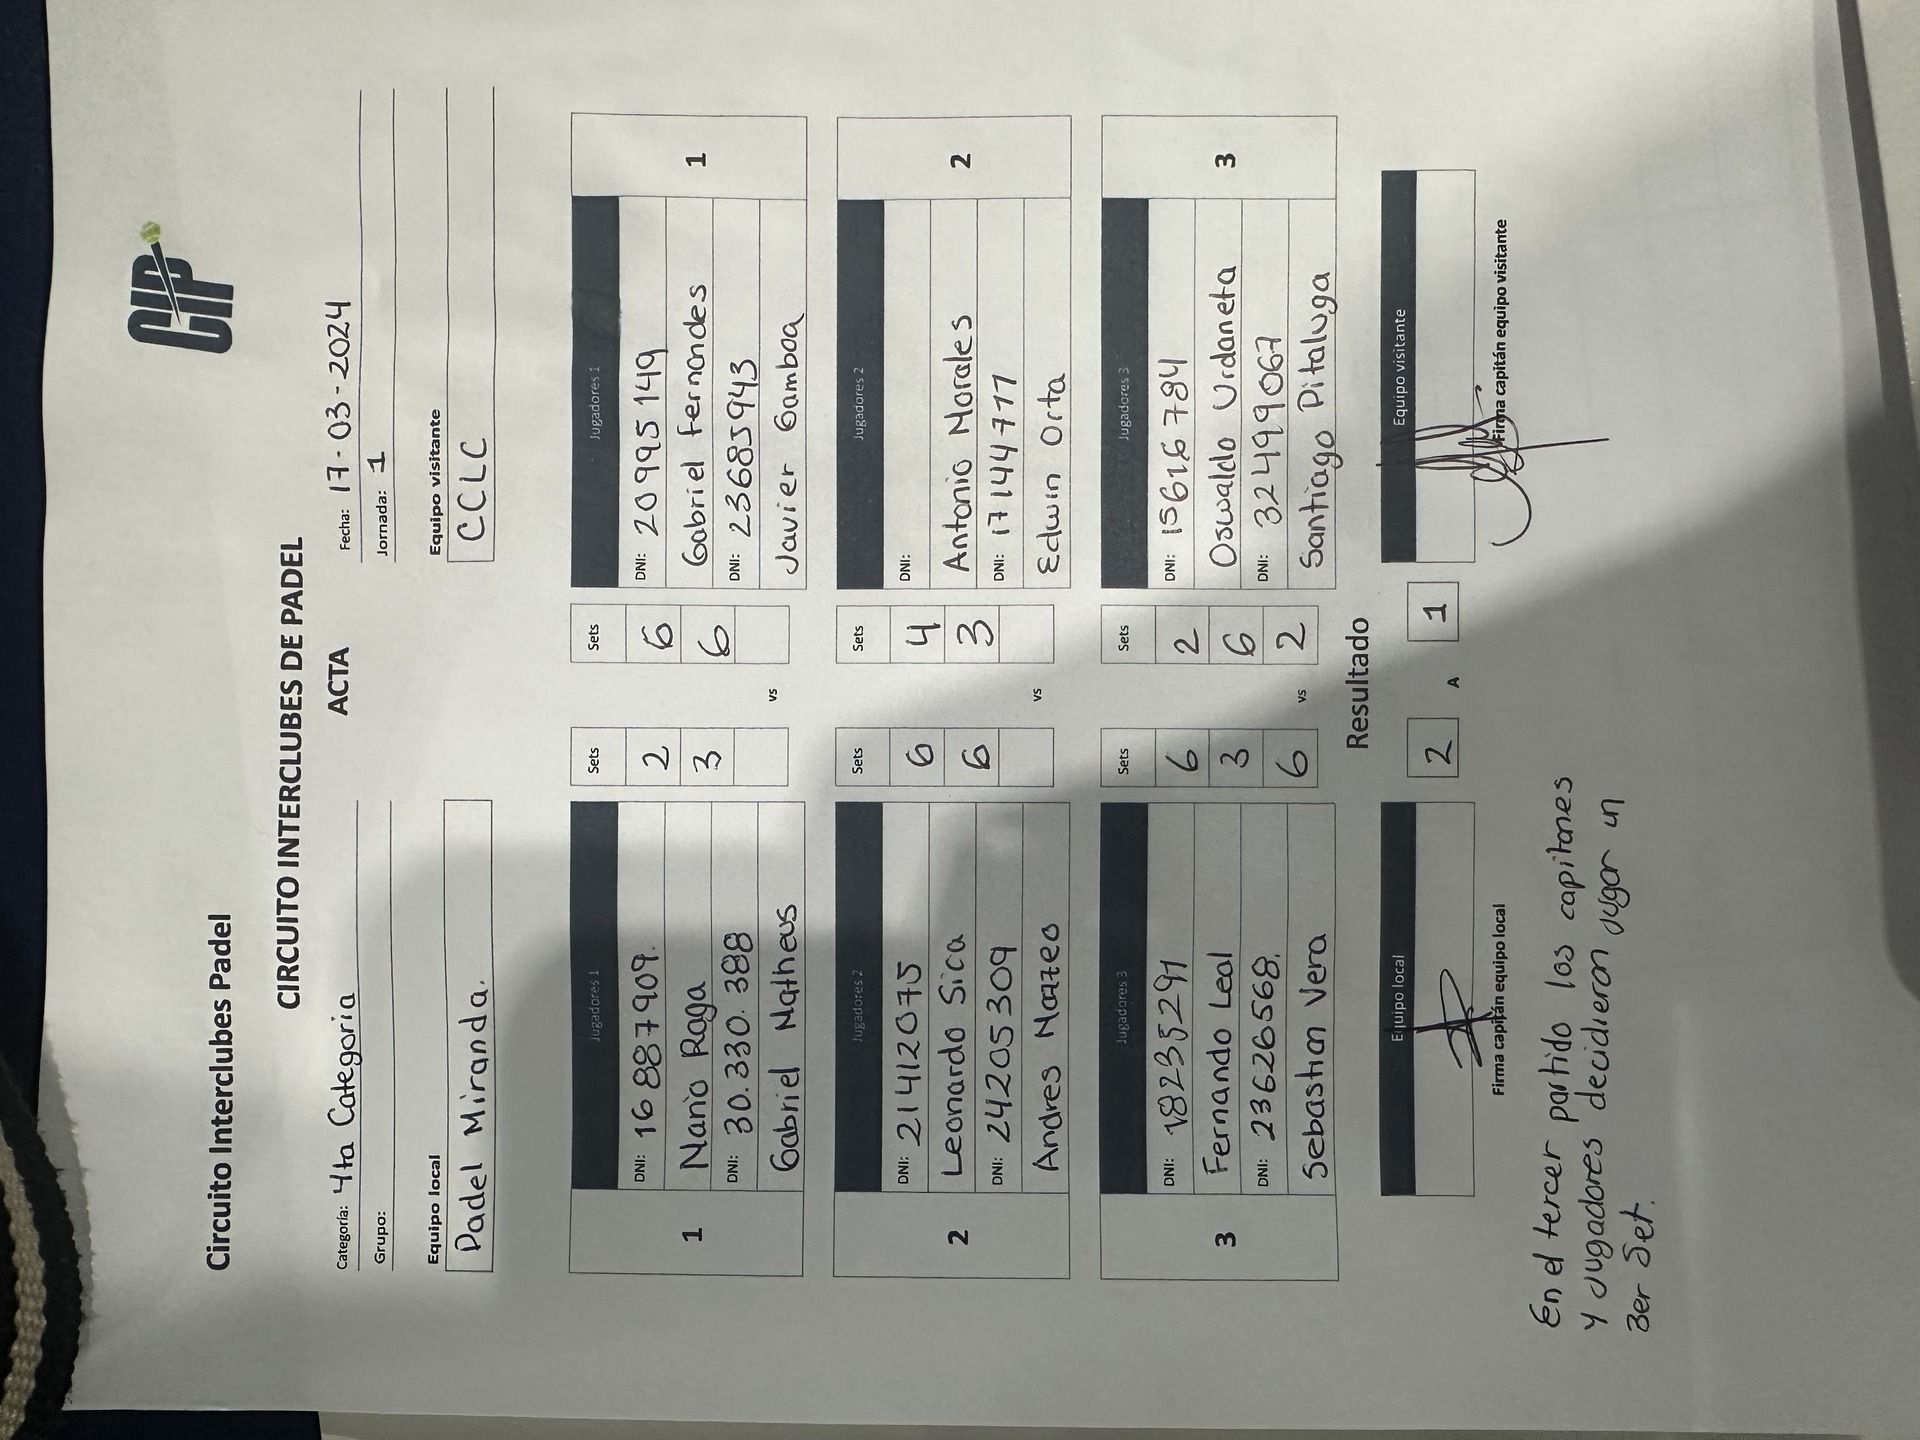 CIP
Circuito Interclubes Padel
CIRCUITO INTERCLUBES DE PADEL
ACTA
Categoría: 4ta Categoria
Fecha: 17-03-2024
Grupo:
Jornada: 1
Equipo local
Equipo visitante
Padel Miranda.
CCLC
Jugadores 1
Sets
Sets
Jugadores 1
1
DNI: 16887909.
2
6
DNI: 20995149
1
Mario Raga
3
6
Gabriel Fernandes
DNI: 30.330.388
DNI: 23685943
Gabriel Matheus
vs
Javier Gamboa
Jugadores 2
Sets
Sets
Jugadores 2
2
DNI: 21412075
6
4
DNI:
2
Leonardo Sica
6
3
Antonio Morales
DNI: 24205309
DNI: 17144777
Andres Mazzeo
vs
Edwin Orta
Jugadores 3
Sets
Sets
Jugadores 3
3
DNI: 18235291
6
2
DNI: 15616784
3
Fernando Leal
3
6
Oswaldo Urdaneta
DNI: 23626568.
6
2
DNI: 32499067
Sebastian Vera
vs
Santiago Pitaluga
Resultado
Equipo local
2
A
1
Equipo visitante
Firma capitán equipo local
Firma capitán equipo visitante
En el tercer partido los capitanes
y jugadores decidieron jugar un
3er Set.